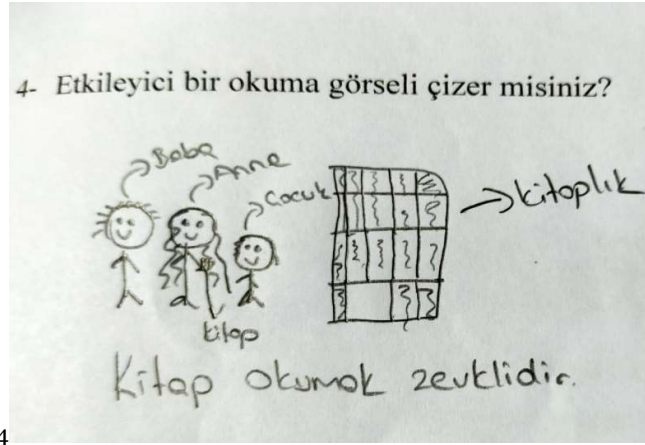 4- Etkileyici bir okuma görseli çizer misiniz?
Baba
Anne
Cocuk
kitaplık
kitap
Kitap okumak zevklidir.
4